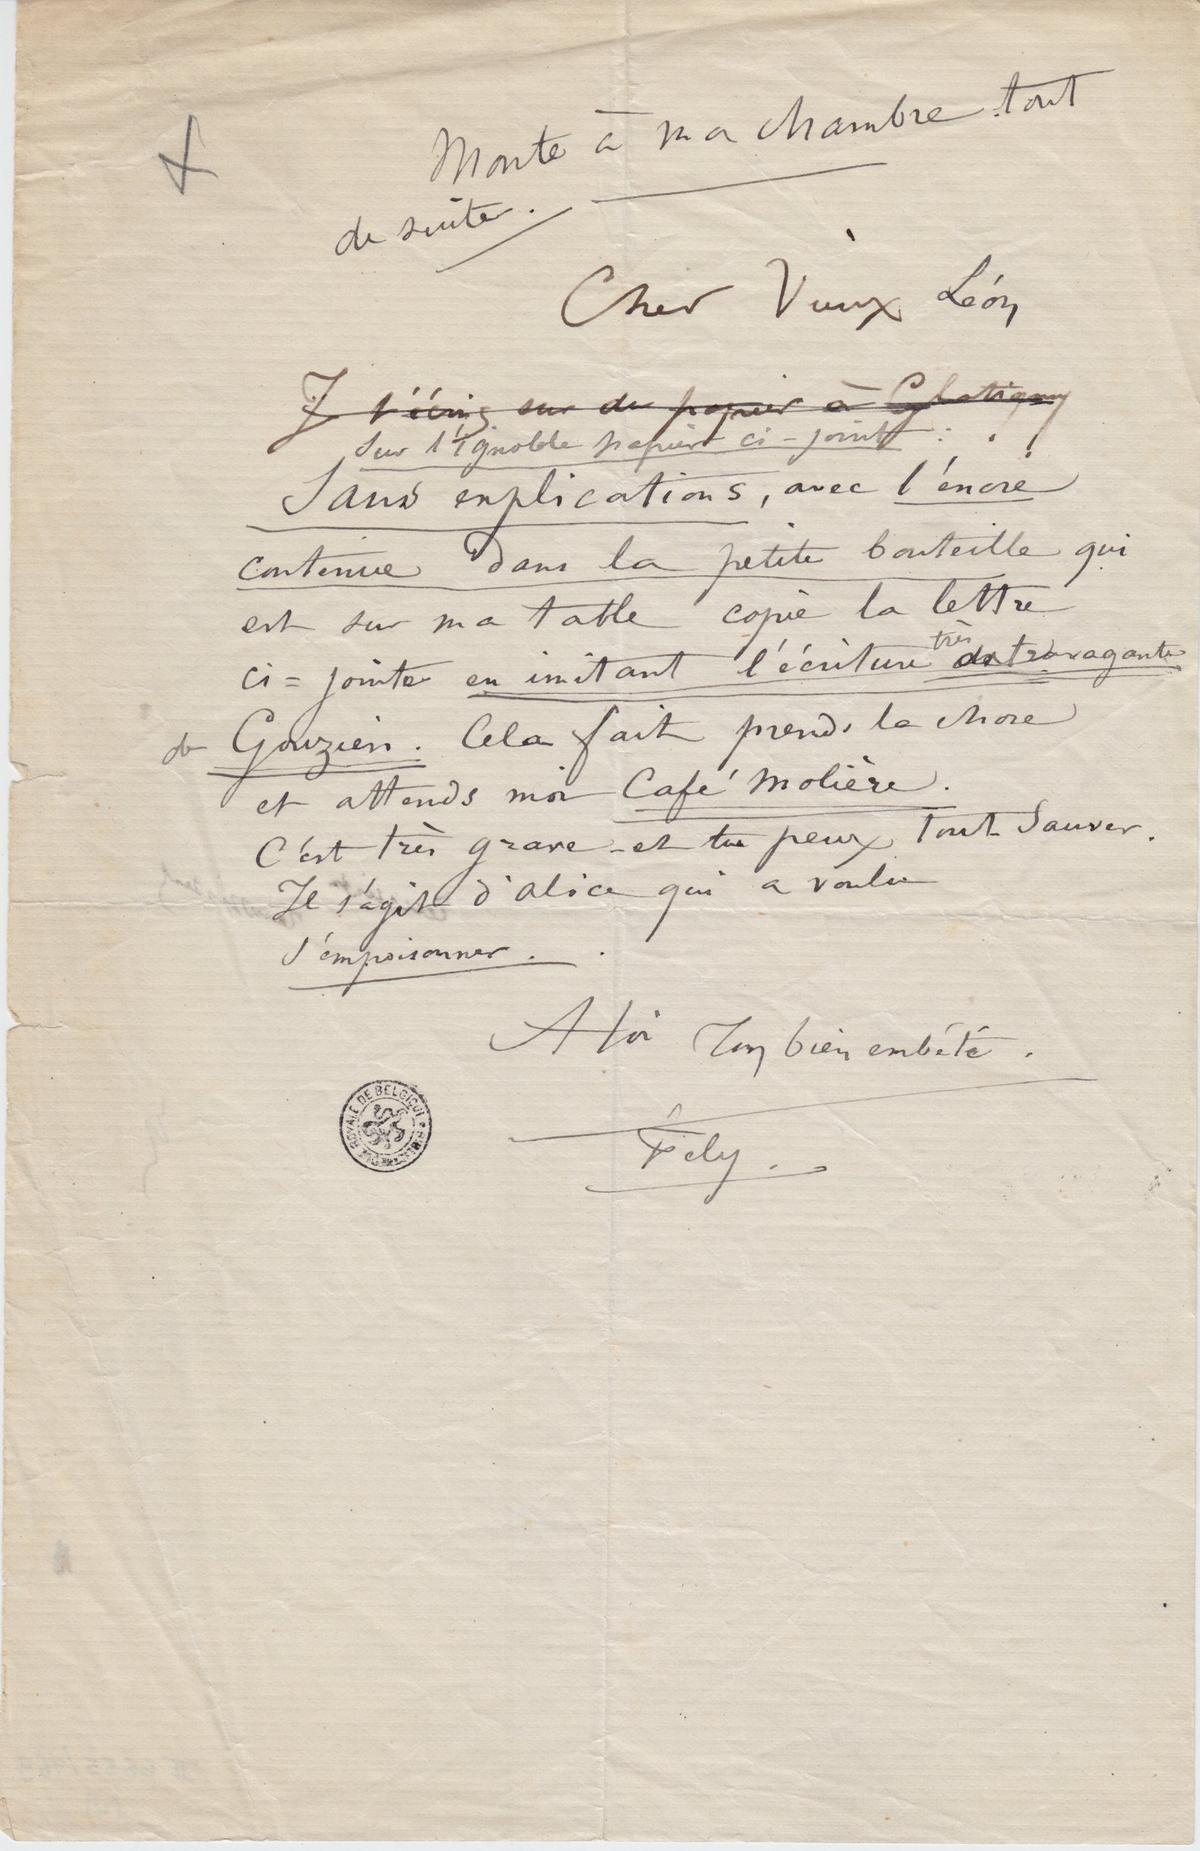 Monte à ma chambre tout
de suite.
Cher Vieux Léon
Je t'écris sur du papier à Glatigny
sur l'ignoble papier ci-joint :
Sans explications, avec l'encre
contenue dans la petite bouteille qui
est sur ma table copie la lettre
très
ci=jointe en imitant l'écriture extravagante
de Gouzien. Cela fait prends la chose
et attends moi Café Molière.
C'est très grave et tu peux tout sauver.
Il s'agit d'Alice qui a voulu
s'empoisonner.
A toi Ton bien embêté.
Fély.
BIBLIOTHEQUE ROYALE DE BELGIQUE